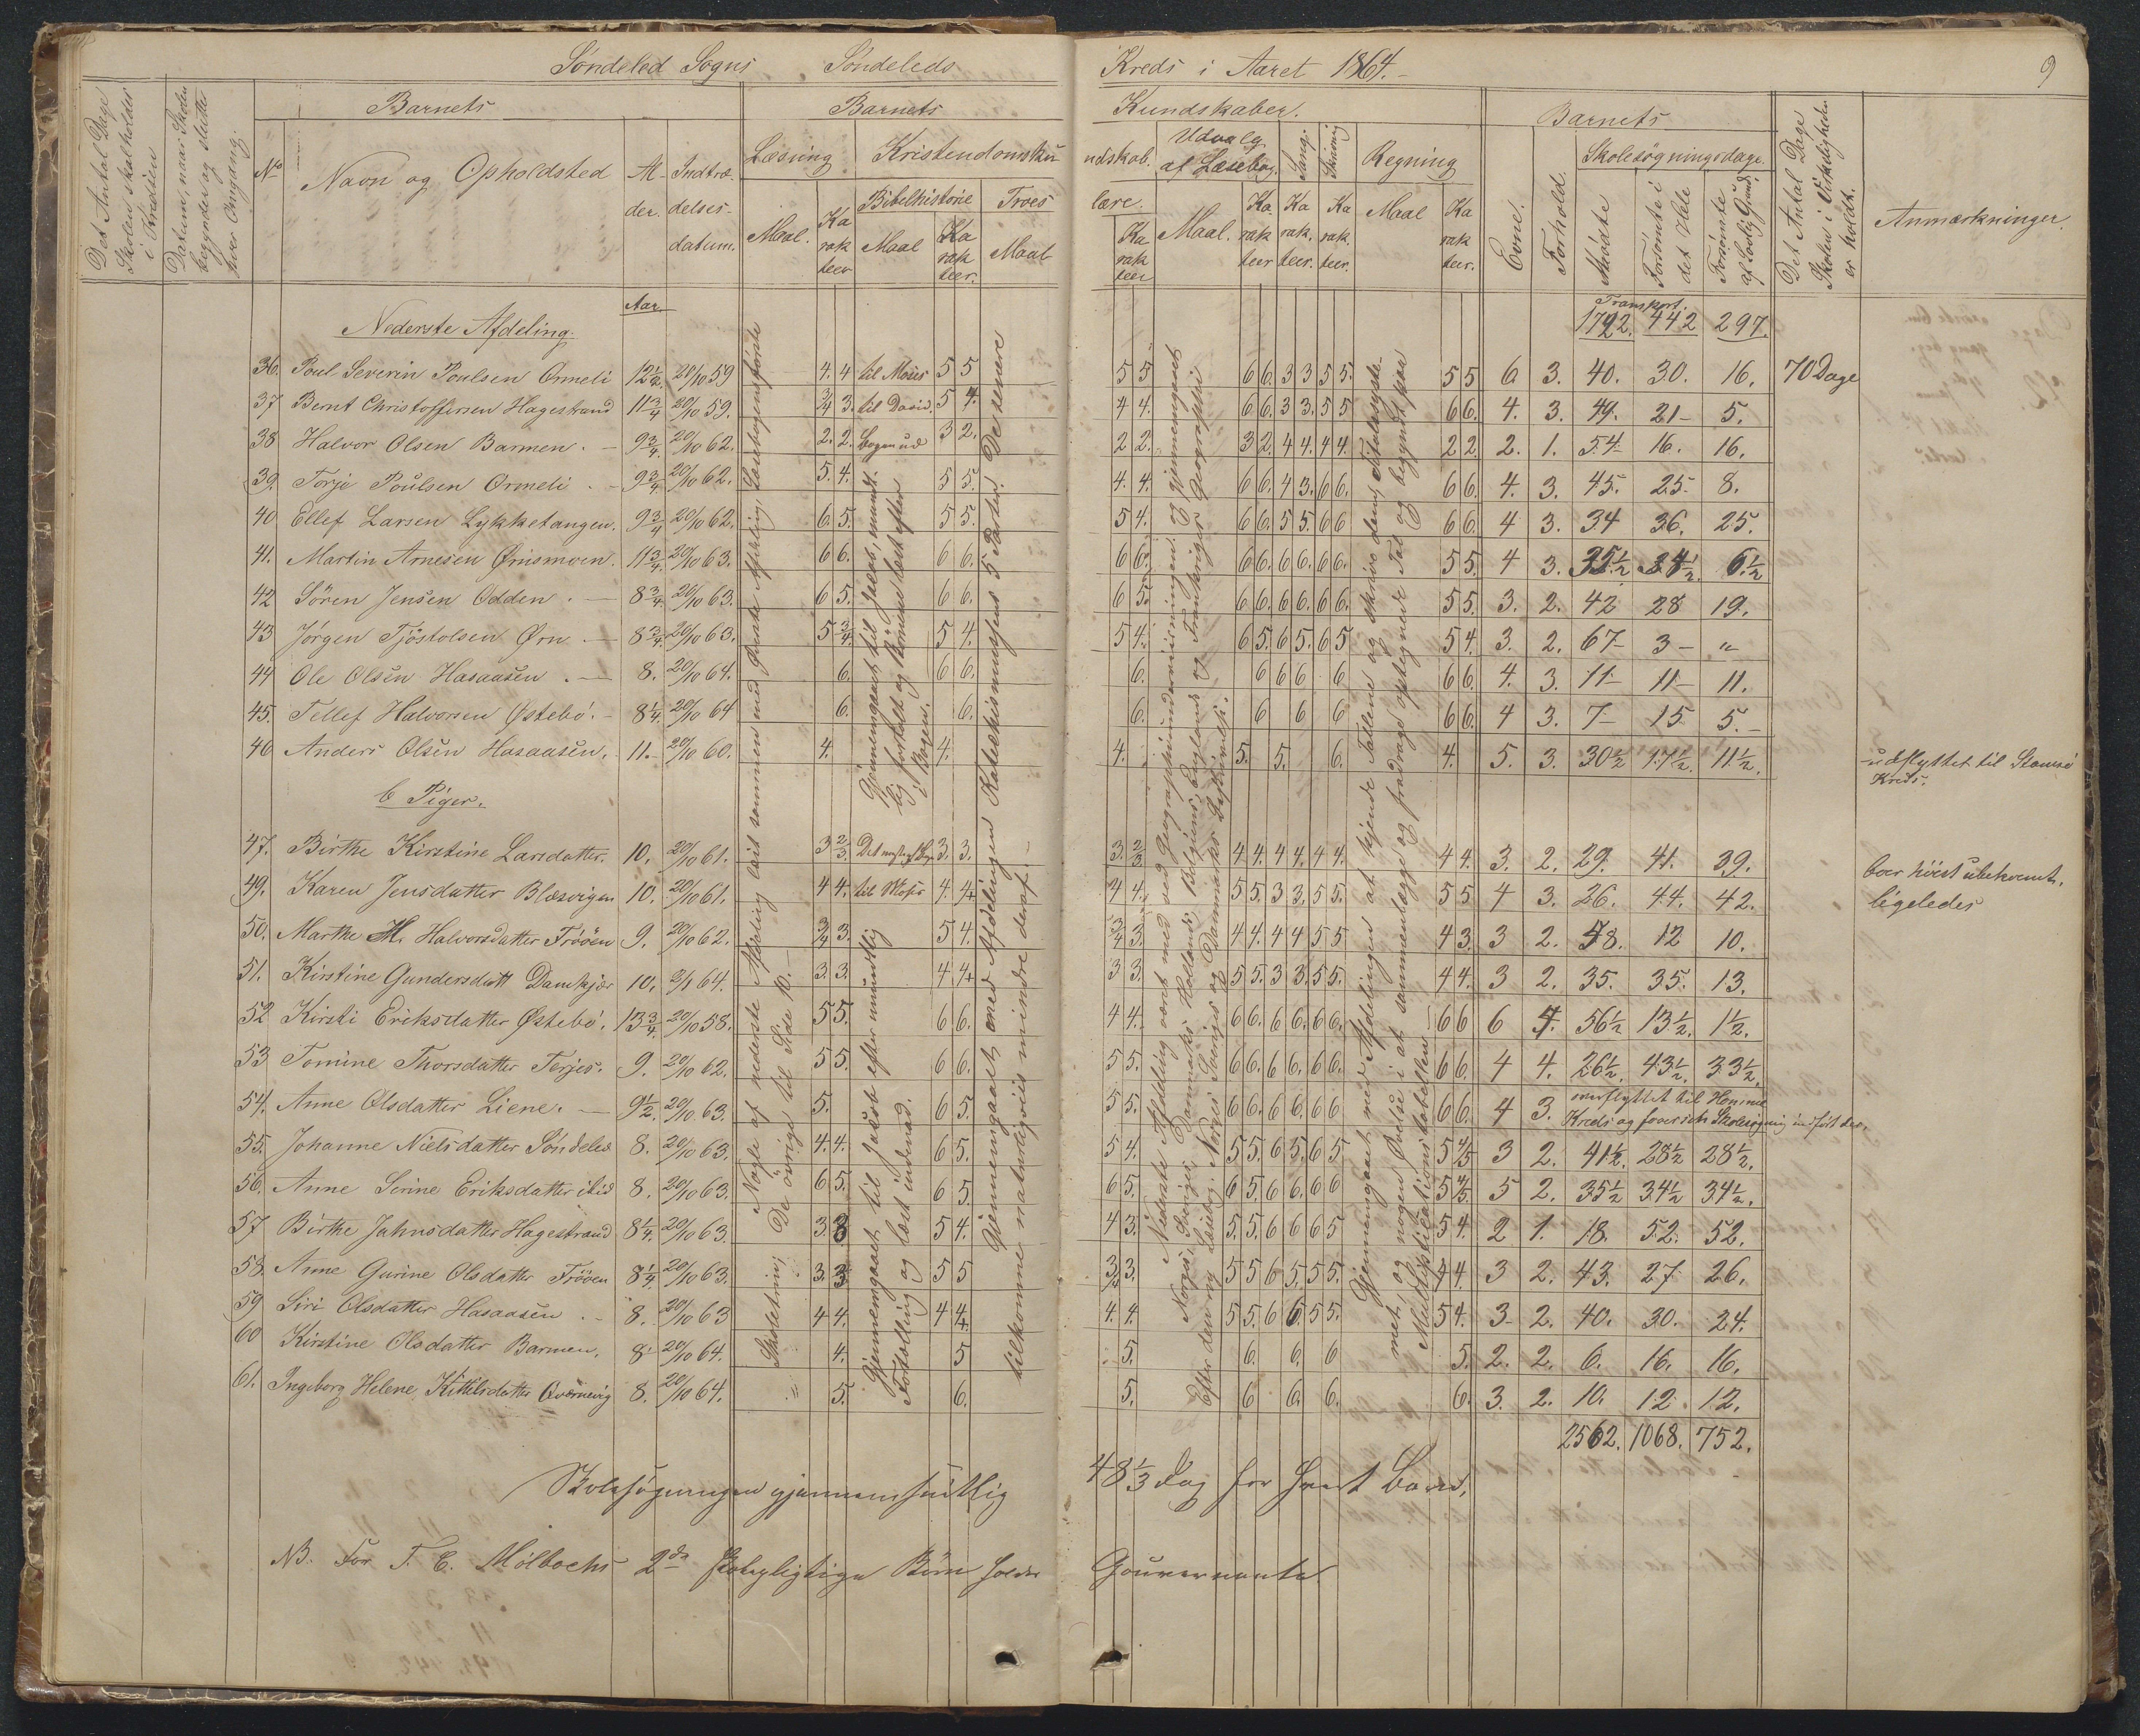 Söndeled Sogns Söndeleds Kreds i Aaret 1864. 9
Det Antal Dage Skolen skal holdes i Kredsen
Datum, naar Skolen begynder og slutter hver Omgang.
Barnets
No
Navn og Opholdsted
Al-der.
Indtræ-delses-datum.
Barnets Kundskaber.
Læsning
Maal.
Karakteer
Kristendomskundskab.
Bibelhistorie
Maal
Karakteer.
Troeslære.
Maal
Karakteer
Udvalg af Læsebog.
Maal.
Karakteer
Sang.
Karakteer.
Skrivnig
Karakteer.
Regning
Maal
Karakteer.
Barnets
Evne.
Forhold.
Skolesøgningsdage.
Mødte
Forsömte i det Hele
Forsömte af lovlig Grund.
Det Antal Dage Skolen i Virkeligheden er holdt.
Anmærkninger.
Aar.
Nederste Afdeling.
Transport. 1792. 442 297.
36. Poul Severin Poulsen Ormeli 12½. 28/10 59 4. 4 til Moses 5 5 5 5 6 6. 3 3 5 5. 5 5 6 3. 40. 30. 16. 70 Dage
37 Bernt Christoffersen Hagestrand 11¾ 20/10 59. ¾ 3. til David. 5 4. 4 4. 6 6. 3 3. 5 5 6 6. 4. 3. 49. 21- 5.
38 Halvor Olsen Barmen. 9¾. 20/10 62. 2. 2. Bogen ud 3 2. 2 2. 3 2. 4 4. 4 4. 2 2. 2. 1. 54 16. 16.
39. Torje Poulsen Ormeli. 9¾ 20/10 62. 5. 4. 5 5. 4. 4. 6 6. 4 3. 6 6. 6 6. 4. 3. 45. 25. 8.
40 Ellef Larsen Lykketangen. 9¾ 20/10 62. 6. 5. 5 5. 5 4. 6 6. 5 5. 6 6 6 6. 4 3. 34 36. 25.
41. Martin Arnesen Ørnsmoen. 11¾. 20/10 63. 6 6. 6 6. 6 6. 6 6. 6 6. 6 6. 5 5. 4 3. 35½ 34½. 6½
42 Sören Jensen Odden. 8¾ 20/10 63. 6 5. 6 6. 6 5. 6 6. 6 6. 6 6. 5 5. 3. 2. 42 28 19.
43 Jørgen Tjöstolsen Ørn. 8¾. 20/10 63. 5 ¾. 5 4. 5 4. 6 5. 6 5. 6 5 5 4. 3. 2. 67- 3- "
44 Ole Olsen Hasaasen. 8. 20/10 64. 6. 6 6. 6. 6 6 6 6 6 6. 4. 3. 11- 11- 11.
45. Tellef Halvorsen Østebö. 8¼. 20/10 64 6. 6. 6. 6 6 6 6 6. 4 3. 7- 15 5.-
46 Anders Olsen Hasaasen. 11.- 20/10 60. 4. 4. 4. 5. 5. 6. 4. 5. 3. 30½ 17½. 11½. udflyttet til Kreds.
b Piger.
47. Birthe Kirstine Larsdatter. 10. 20/10 61. 3 ⅔. 3. 3. 3. ⅔ 4 4. 4 4. 4 4. 4 4. 3. 2. 29. 41. 39. boer höist ubekvemt.
49. Karen Jensdatter Blæsvigen 10. 20/10 61. 4 4. til Moses 4. 4 4 4. 5 5. 3 3. 5 5. 5 5 4 3. 26. 44. 42. ligeledes
50. Marthe M. Halvorsdatter Fröoen 9. 20/10 62. ¾ 3. 5 4. ¾ 3. 4 4. 4 4 5 5 4 3. 3 2. 58. 12 10.
51. Kirstine Gundersdatt Damkjær 10. 2/1 64. 3. 3. 4 4 3 3. 5 5. 3 3. 5 5. 4 4. 3 2. 35. 35. 13.
52 Kirsti Eriksdatter Østebö. 13¾ 20/10 58. 5 5. 6 6. 4 4. 6 6. 6 6. 6 6. 6 6 6 4. 56½ 13½. 1½.
53 Tomine Thorsdatter Terjes. 9. 20/10 62. 5 5. 6 6. 5 5. 6 6. 6 6. 6 6. 6 6. 4 4. 26½. 43½. 33½.
54. Anne Olsdatter Liene. 9½. 20/10 63. 5. 6 5. 5 5. 6 6. 6 6. 6 6 6 6. 4 3. overflyttet til Hommen Kreds og indfört der.
55. Johanne Nielsdatter Söndeled 8. 20/10 63. 4. 4. 6 5. 5 4. 5 5. 6 5. 6 5 5 ⅘ 3 2. 41½. 28½ 28½.
56. Anne Serine Eriksdatter ibid 8. 20/10 63. 6 5. 6 5. 6 5. 6 5. 6 6. 6 6 5 ⅘. 5 2. 35½ 34½ 34½.
57 Birthe Jahnsdatter Hagestrand 8¼. 20/10 63. 3. 3 5 4. 4 3. 5. 5. 6 6 6 5 5 4. 2 1. 18. 52. 52.
58. Anne Gurine Olsdatter Fröoen 8¼. 20/10 63. 3. 3 5 5 ¾ 3. 5 5 6 5. 5 5. 4 4. 3 2. 43. 27 26.
59. Siri Olsdatter Hasaasen. 8. 20/10 63 4 4. 4 4. 4. 4. 5 5. 6 6 5 5. 5 4. 3 2. 40. 30. 24.
60 Kirstine Olsdatter Barmen. 8 20/10 64. 4. 5 5. 6. 6. 6 5. 2. 2. 6. 16. 16.
61. Ingeborg Helene Kittilsdatter Qvernevig 8. 20/10 64. " 5. 6. 5. 6 6. 6. 6. 3. 2. 10. 12. 12.
2562. 1068. 752.
Nogle af nederste Afdeling læst sammen med Øverste Afdeling, Læsebogens förste
Skoletrin; De övrige til Side 10.
Gjennemgaaet til Jacob, mundtlig fortalt og læst efter i Bogen.
Gjennemgaaet til Jacob efter mundtlig Fortælling og læst indenad.
Gjennemgaaet med Afdelingen Katekismusens 5 Parter. De senere tilkomne naturligviis mindre deraf.
Nederste Afdeling været med ved Geographiundervisningen: og gjennemgaaet
Norges, Sveriges, Danmarks, Hollands, Belgiens, Englands og Frankriges Geographi.
Efter den og Læsebog: Norges, Sveriges og Danmarks Beskrivelse.
Gjennemgaaet med Afdelingen at kjende Tallene og skrive dem,
met, og nogen Øvelse i at sammenlægge og fradrage opskrevne Tal og begyndt paa
Multiplicationstabellen
Skolesøgningen gjennemsnitlig 48⅓ Dag for hvert Barn.
NB. For T. C. Mölbachs 2de skolepligtige Börn holdes Gouvernante.